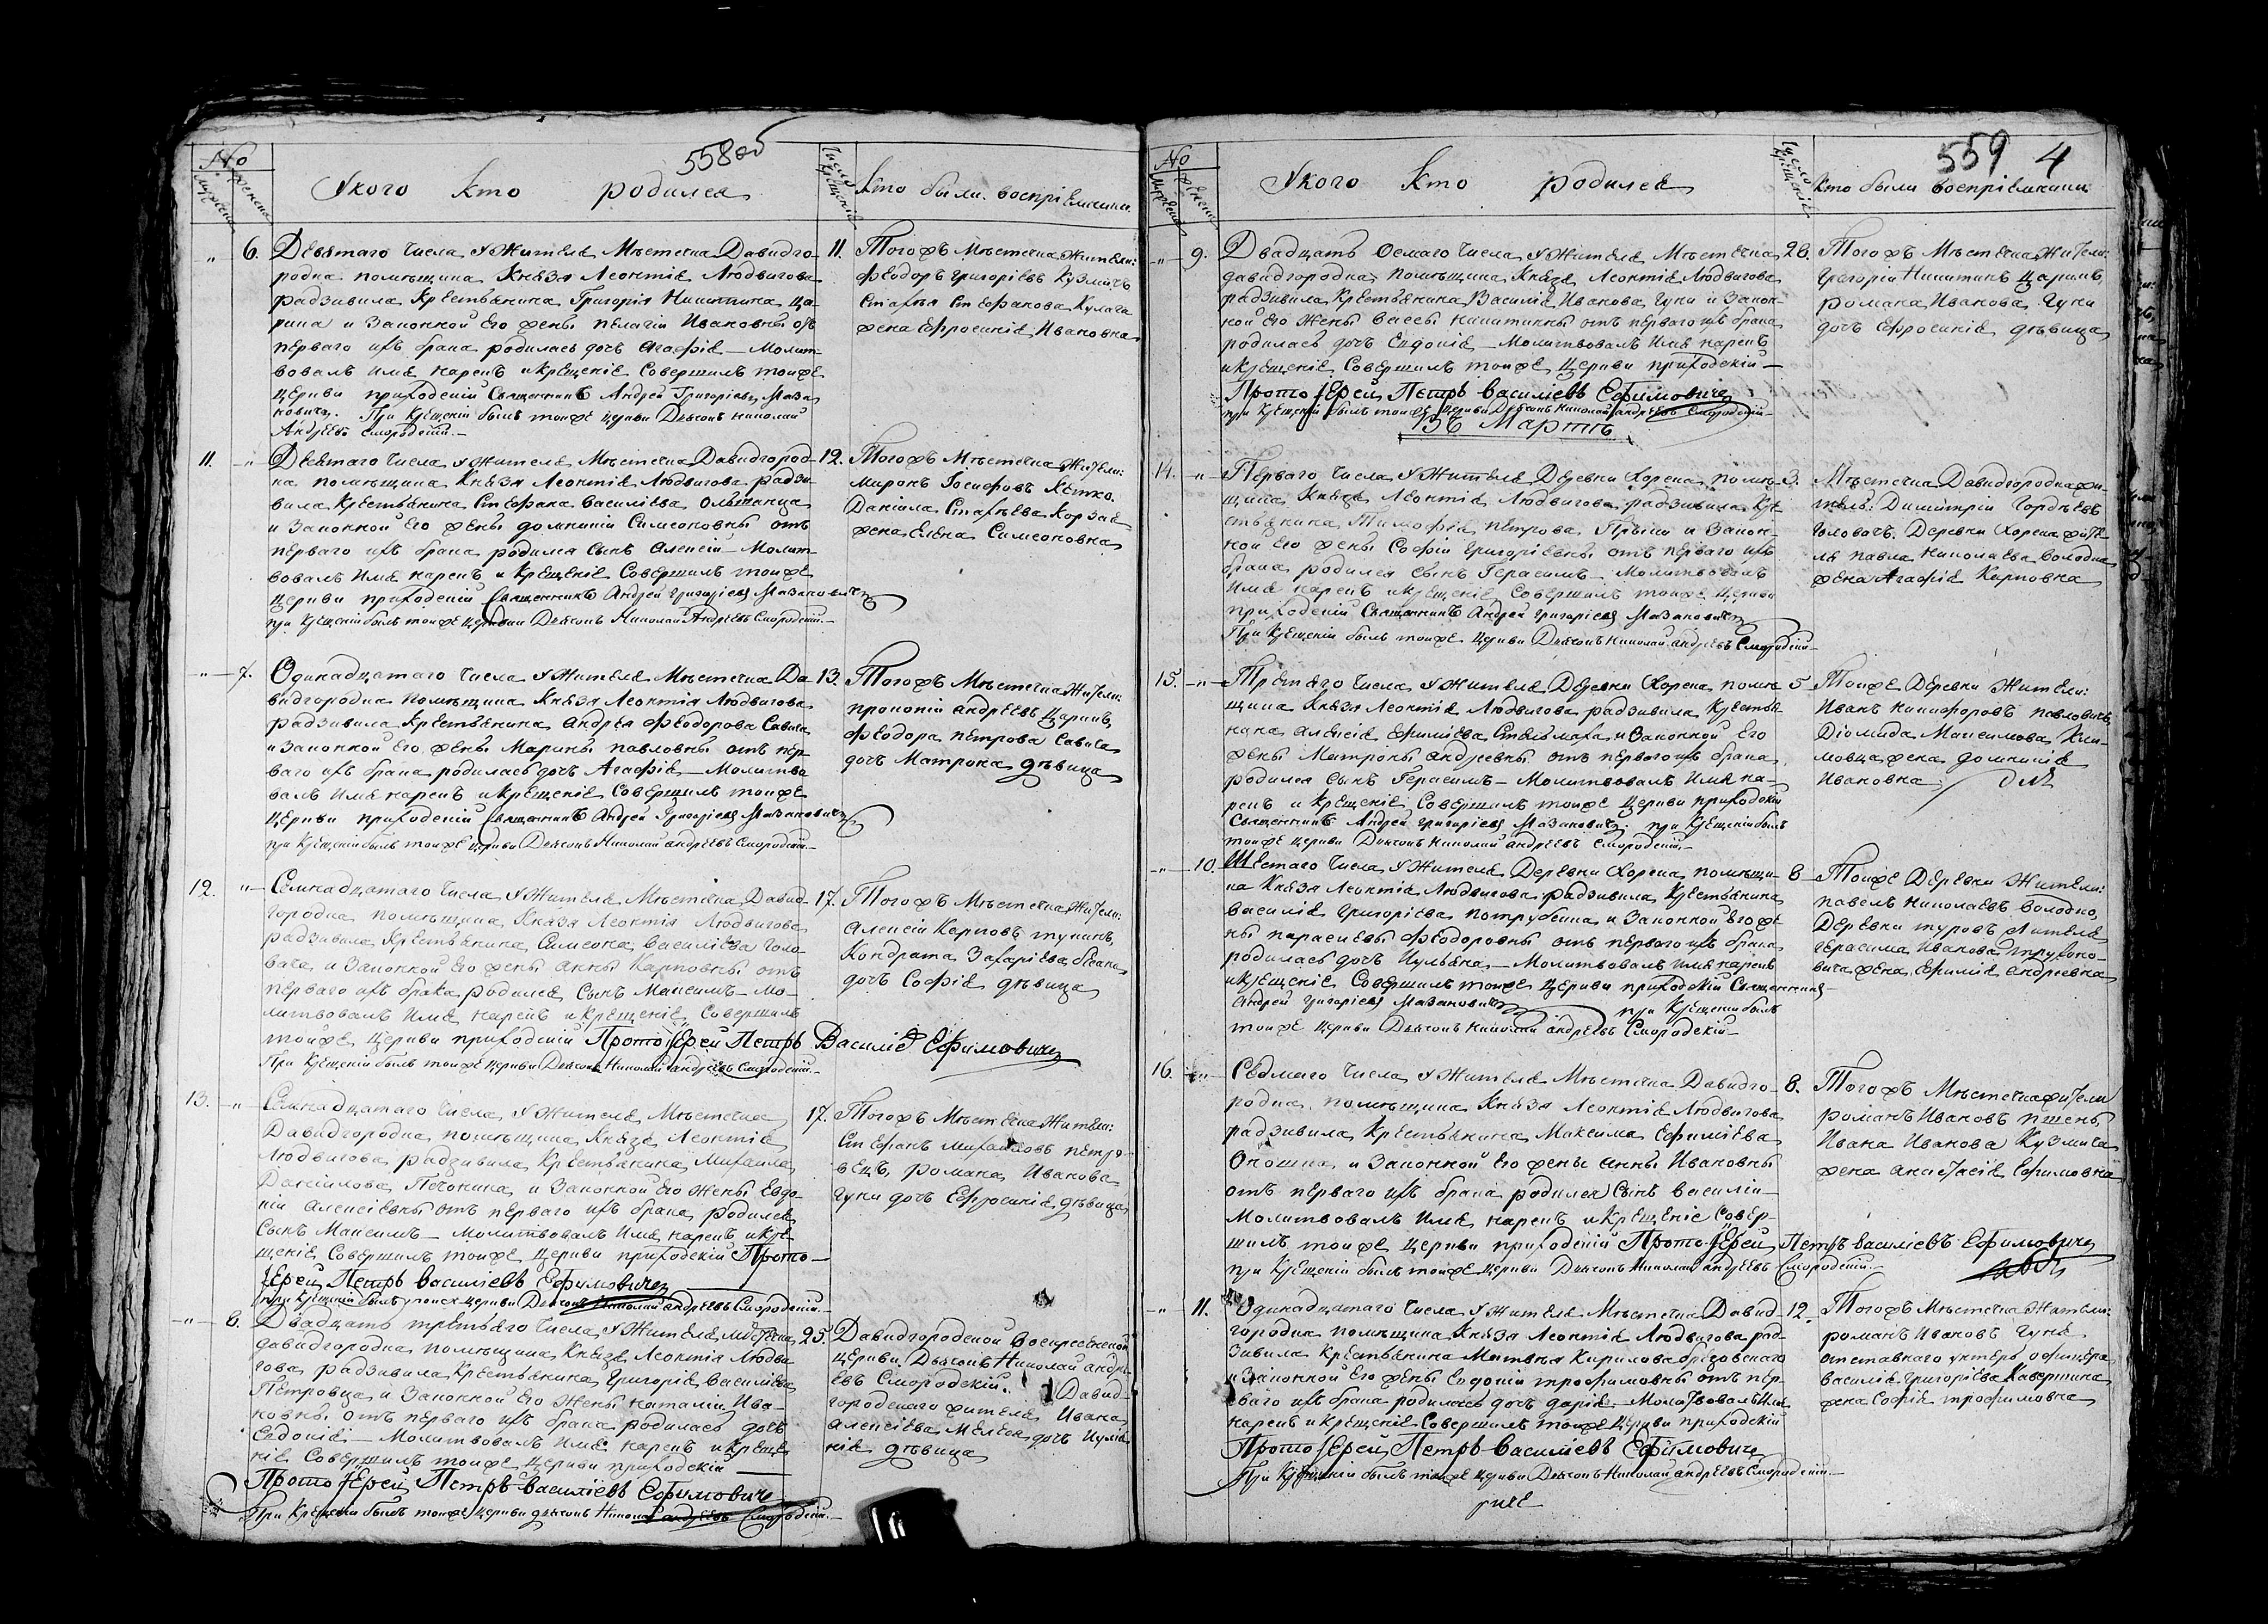 558об
No
мужеска женска
У кого кто родился
Число крещенія
Кто были воспріемники.
„ 6. Девятаго Числа у Жителя Мѣстечка Давидго-
родка помѣщика Князя Леонтія Людвигова
радзивила Крестьянина Григорія Никитина Ца-
рика и Законной Его жены пелагіи Ивановны отъ
перваго ихъ брака родилась дочь Агафія — Молит-
вовалъ имя нарекъ и крещеніе Совершилъ тойже
церкви приходскій Священникъ Андрей Григоріевъ Маза-
новичъ. При Крещеніи былъ тойже церкви Дьяконъ Николай
Андреевъ Смородскій.—
11. Тогожъ Мѣстечка жители:
Феодоръ Григоріевъ Кузмичъ
Стефана Кулага
жена Ефросинія Ивановна
11. „ Девятаго Числа у Жителя Мѣстечка Давидгород-
ка помѣщика Князя Леонтія Людвигова радзи-
вила Крестьянина Стефана Василіева Ольпанца
и Законной Его жены домникіи Симеоновны отъ
перваго ихъ брака родился Сынъ Алексій — Молит-
вовалъ имя нарекъ и Крещеніе Совершилъ тойже
Церкви приходскій Священникъ Андрей Григоріевъ Мазановичъ
при Крещеніи былъ тойже церкви Дьяконъ Николай Андреевъ Смородскій.—
12. Тогожъ Мѣстечка Жители:
миронъ Іосифовъ
Даніила
жена Елена Симеоновна
„ 7. Одинадцатаго Числа у Жителя Мѣстечка Да-
видгородка Помѣщика Князя Леонтія Людвигова
радзивила Крестьянина Андрея Феодорова Савича
и Законной Его жены Марины павловны отъ пер-
ваго ихъ брака родилась дочь Агафія — Молитво
валъ имя нарекъ и Крещеніе Совершилъ тойже
Церкви приходскій Священникъ Андрей Григоріевъ Мазановичъ
при Крещеніи былъ тойже церкви Дьяконъ Николай андреевъ Смородскій.—
13. Тогожъ Мѣстечка Жители:
прокопій андреевъ Царикъ,
Феодора петрова Савича
дочь Матрона дѣвица
12. „ Семнадцатаго Числа у Жителя Мѣстечка Давид-
городка помѣщика Князя Леонтія Людвигова
радзивила Крестьянина Симеона Василіева Голо-
вача и Законной Его жены анны Карповны отъ
перваго ихъ брака родился Сынъ Максимъ — Мо-
литвовалъ имя нарекъ и крещеніе Совершилъ
тойже Церкви приходскій Протоіерей Петръ Василіевъ Ефимовичъ
При Крещеніи былъ тойже церкви Дьяконъ Николай андреевъ Смородскій.—
17. Тогожъ Мѣстечка Жители:
Алексій Карповъ
Кондрата Захаріева
дочь Софія дѣвица
13. „ Семнадцатаго Числа у Жителя Мѣстечка
Давидгородка помѣщика Князя Леонтія
Людвигова радзивила Крестьянина Михаила
Даніилова и Законной Его Жены Евдо-
кіи алексіевны отъ перваго ихъ брака родился
Сынъ Максимъ — молитвовалъ имя нарекъ и кре-
щеніе Совершилъ тойже Церкви приходскій Прото-
іерей Петръ Василіевъ Ефимовичъ
при Крещеніи былъ тойже церкви Дьяконъ Николай андреевъ Смородскій.—
17. Тогожъ Мѣстечка Жители:
Стефанъ Михайловъ петро-
вецъ, романа Иванова
гуки дочь Ефросинія дѣвица
„ 8. Двадцать третьяго Числа у Жителя мѣстечка
давидгородка помѣщика Князя Леонтія Людви
гова радзивила Крестьянина Григорія Василіева
Петровца и Законной Его Жены наталіи Ива-
новны отъ перваго ихъ брака родилась дочь
Евдокія — Молитвовалъ имя нарекъ и Креще-
ніе Совершилъ тойже Церкви приходскій
Протоіерей Петръ Василіевъ Ефимовичъ
При Крещеніи былъ тойже Церкви дьяконъ Николай андреевъ Смородскій.—
25. Давидгородской Воскресенской
церкви Дьяконъ Николай андре-
евъ Смородскій. Давид-
городскаго жителя Ивана
алексіева дочь Іулія-
нія дѣвица
559 4
No
мужеска женска
У кого кто родился
Число крещенія
Кто были воспріемники
„ 9. Двадцать Осмаго Числа у Жителя Мѣстечка
давидгородка помѣщика Князя Леонтія Людвигова
радзивила Крестьянина Василія Иванова Гуки и Закон-
ной Его Жены Вассы никитины отъ перваго ихъ брака
родилась дочь Евдокія — Молитвовалъ имя нарекъ
и крещеніе Совершилъ тойже Церкви приходскій —
Протоіерей Петръ Василіевъ Ефимовичъ
при Крещеніи былъ тойже Церкви Дьяконъ Николай андреевъ Смородскій—
28. Тогожъ Мѣстечка Жители:
Григорій Никитинъ Царикъ,
романа Иванова Гуки
дочь Ефросинія дѣвица
Въ Мартѣ
14. „ Перваго Числа у Жителя Деревни Хорска помѣ-
щика Князя Леонтія Людвигова радзивила Кре
стьянина Тимофія петрова и Закон-
ной Его жены Софіи Григоріевны отъ перваго ихъ
брака родился сынъ Герасимъ — Молитвовалъ
имя нарекъ и крещеніе Совершилъ тойже Церкви
приходскій Священникъ Андрей Григоріевъ Мазановичъ
При Крещеніи былъ тойже Церкви Дьяконъ Николай андреевъ Смородскій—
3. Мѣстечка Давидгородка жи-
тель: Димитрій Гордѣевъ
Головачъ. Деревни Хорска жите-
ля павла Николаева Володко
жена Агафія Карповна
15. „ Третяго Числа у Жителя Деревни Хорска помѣ
щика Князя Леонтія Людвигова радзивила Крестья
нина алексія Ефиміева Стельмаха и Законной Его
жены Матроны андреевны отъ перваго ихъ брака
родился Сынъ Герасимъ — Молитвовалъ имя на-
рекъ и Крещеніе Совершилъ тойже Церкви приходскій
Священникъ Андрей Григоріевъ Мазановичъ. при Крещеніи былъ
тойже церкви Дьяконъ Николай андреевъ Смородскій.—
5 Тойже Деревни Жители:
Иванъ Никифоровъ павловичъ,
Діомида Максимова Кли-
мовца жена домникія
Ивановна
„ 10. Шестаго Числа у Жителя Деревни Хорска помѣщи-
ка Князя Леонтія Людвигова радзивила Крестьянина
Василія Григоріева потрубейка и Законной Его же
ны параскевы Феодоровны отъ перваго ихъ брака
родилась дочь Іульяна — Молитвовалъ имя нарекъ
и крещеніе Совершилъ тойже Церкви приходскій Священникъ
Андрей Григоріевъ Мазановичъ при Крещеніи былъ
тойже Церкви Дьяконъ Николай андреевъ Смородскій—
8 Тойже Деревни Жители:
павелъ Николаевъ Володко,
Деревни туровъ жителя
герасима Иванова трухоно-
вича жена Ефимія андреевна
16. „ Седмаго Числа у Жителя Мѣстечка Давидго-
родка помѣщика Князя Леонтія Людвигова
радзивила Крестьянина Максима Ефиміева
Оношка и Законной Его жены анны Ивановны
отъ перваго ихъ брака родился Сынъ Василій —
Молитвовалъ имя нарекъ и Крещеніе Совер-
шилъ тойже Церкви приходскій Протоіерей Петръ Василіевъ Ефимовичъ
при Крещеніи былъ тойже Церкви Дьяконъ Николай андреевъ Смородскій.—
8. Тогожъ Мѣстечка жители
романъ Ивановъ
Ивана Иванова Кузмича
жена анастасія Ефимовна
„ 11. Одинадцатаго Числа у Жителя Мѣстечка Давид-
городка помѣщика Князя Леонтія Людвигова рад-
зивила Крестьянина Матвѣя Кирилова
и Законной Его жены Евдокіи трофимовны отъ пер-
ваго ихъ брака родилась дочь дарія. Молитвовалъ имя
нарекъ и крещеніе Совершилъ тойже Церкви приходскій
Протоіерей Петръ Василіевъ Ефимовичъ
При Крещеніи былъ тойже Церкви Дьяконъ Николай андреевъ Смородскій—
12. Тогожъ Мѣстечка Жители:
романъ Ивановъ Гука
отставнаго унтеръ офицера
Василія Григоріева Каверника
жена Софія трофимовна